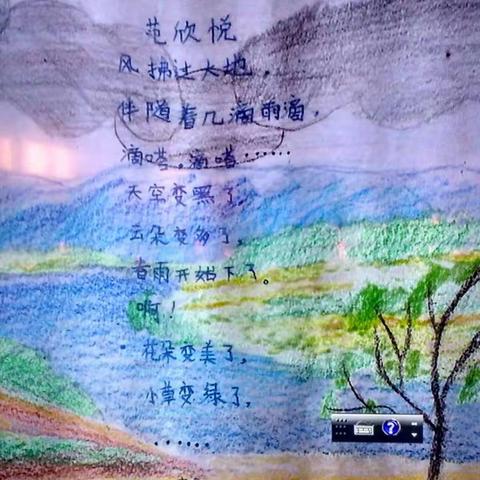 范欣悦
风拂过大地，
伴随着几滴雨滴，
滴嗒，滴嗒……
天空变黑了，
云朵变多了，
春雨开始下了。
啊！
花朵变美了，
小草变绿了，
……